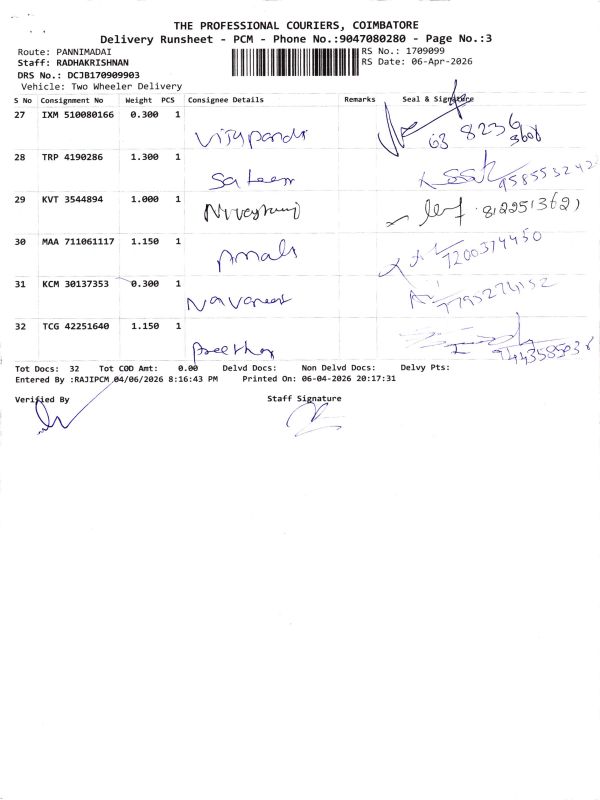 THE PROFESSIONAL COURIERS, COIMBATORE
Delivery Runsheet - PCM - Phone No.:9047080280 - Page No.:3
Route: PANNIMADAI RS No.: 1709099
Staff: RADHAKRISHNAN RS Date: 06-Apr-2026
DRS No.: DCJB170909903
Vehicle: Two Wheeler Delivery
S No Consignment No Weight PCS Consignee Details Remarks Seal & Signature
27 IXM 510080166 0.300 1 63 8236
28 TRP 4190286 1.300 1 Sateesh
29 KVT 3544894 1.000 1 8122513621
30 MAA 711061117 1.150 1 Amala 7200374450
31 KCM 30137353 0.300 1 Navaneet
32 TCG 42251640 1.150 1 Preetha
Tot Docs: 32 Tot COD Amt: 0.00 Delvd Docs: Non Delvd Docs: Delvy Pts:
Entered By :RAJIPCM 04/06/2026 8:16:43 PM Printed On: 06-04-2026 20:17:31
Verified By Staff Signature